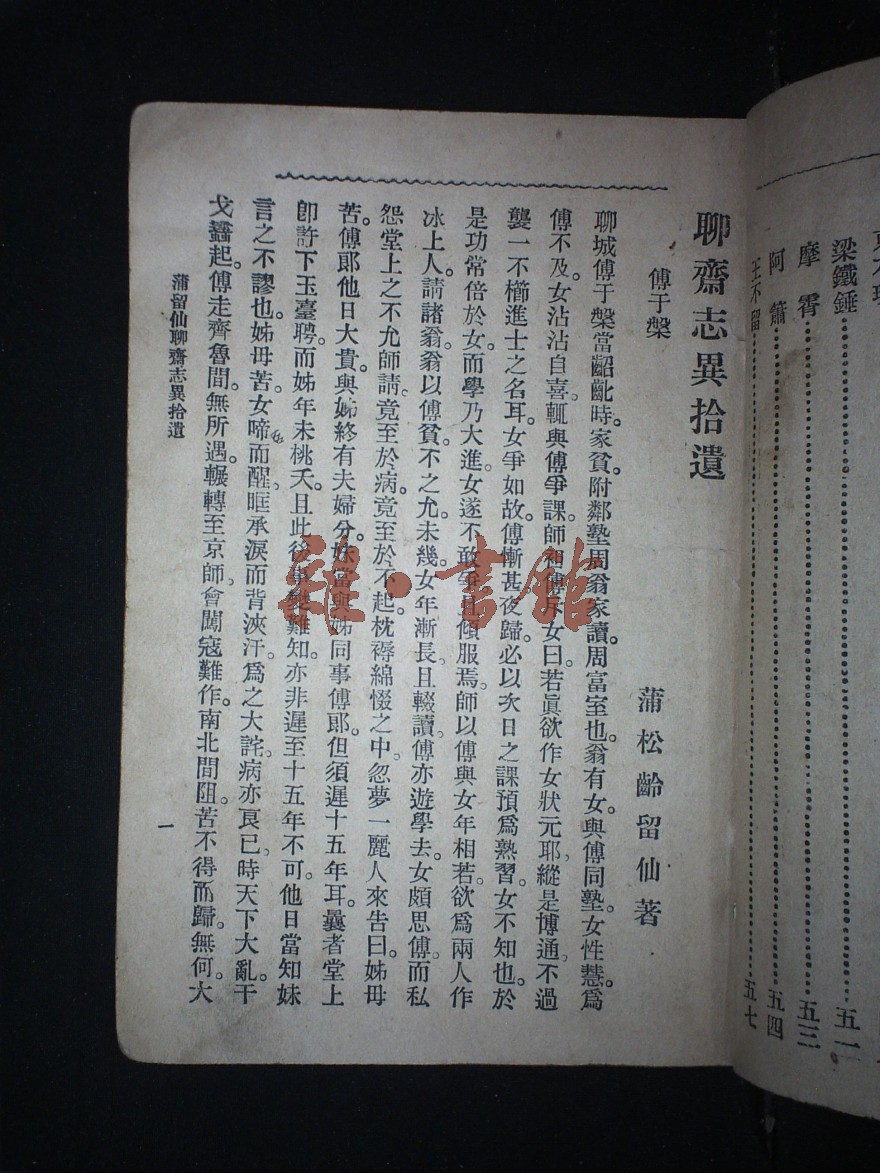 梁鐵錘⋯⋯⋯⋯⋯⋯五一
摩霄⋯⋯⋯⋯⋯⋯五三
阿鏽⋯⋯⋯⋯⋯⋯五四
王不留⋯⋯⋯⋯⋯⋯五七
聊齋志異拾遺
蒲松齡留仙著
傅于槃
聊城傅于槃當齠齔時。家貧。附鄰塾周翁家讀。周富室也。翁有女。與傅同塾。女性慧。爲
傅不及。女沾沾自喜。輒與傅爭課。師和傅斥女曰。若眞欲作女狀元耶。縱是博通。不過
襲一不櫛進士之名耳。女爭如故。傅慚甚。夜歸。必以次日之課預爲熟習。女不知也。於
是功常倍於女。而學乃大進。女遂不敢爭。且傾服焉。師以傅與女年相若。欲爲兩人作
冰上人。請諸翁。翁以傅貧。不之允。未幾。女年漸長。且輟讀。傅亦遊學去。女頗思傅。而私
怨堂上之不允師請。竟至於病。竟至於不起。枕褥綿惙之中。忽夢一麗人來告曰。姊毋
苦。傅郎他日大貴。與姊終有夫婦分。妹當與姊同事傅郎。但須遲十五年耳。曩者堂上
卽許下玉臺聘。而姊年未桃夭。且此後事變難知。亦非遲至十五年不可。他日當知妹
言之不謬也。姊毋苦。女啼而醒。眶承淚而背浹汗。爲之大詫。病亦良已。時天下大亂。干
戈蠭起。傅走齊魯間。無所遇。輾轉至京師。會闖寇難作。南北間阻。苦不得而歸。無何。大
蒲留仙聊齋志異拾遺
一
雜·書館